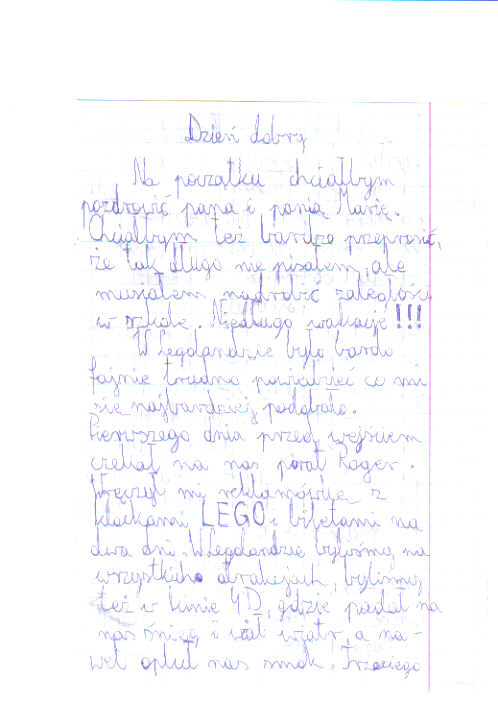 Dzień dobry
Na początku chciałbym
pozdrowić pana i panią Marię.
Chciałbym też bardzo przeprosić,
że tak długo nie pisałem, ale
musiałem nadrobić zaległości
w szkole. Niedługo wakacje !!!
W Legolandzie było bardo
fajnie trudno powiedzieć co mi
sie najbardziej podobało.
Pierwszego dnia przed wejściem
czekał na nas pirat Roger.
Wręczył mi reklamówkę z
klockami LEGO i biletami na
dwa dni. W Legolandzie byliśmy na
wszystkich atrakcjach, byliśmy
też w kinie 4D, gdzie padał na
nas śnieg i wiał wiatr, a na-
wet opluł nas smok. Trzeciego